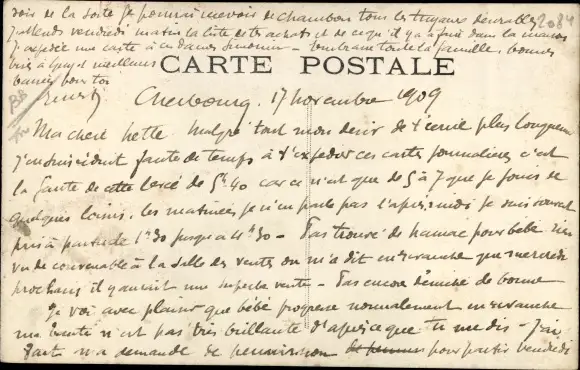 sois de la sorte je pourrai recevoir de chambon tous les tuyaux désirables 2084
J'attends vendredi matin la liste de tes achats et de ce qu'il y a à faire dans la maison
J'expédie une carte à ces dames Simonin - Embrasse toute la famille, bonnes
bises à Guy et meilleurs
CARTE POSTALE
baisers pour toi
Ernest
BB
Cherbourg, 17 novembre 1909
Ma chère nette malgré tout mon désir de t'écrire plus longuement
j'en suis réduit faute de temps à t'expédier ces cartes journalières c'est
la faute de cette levée de 5h40 car ce n'est que de 5 à 7 que je jouis de
quelques loisirs. les matinées je n'en parle pas l'après-midi je suis souvent
pris à partir de 1h30 jusqu'à 4h30 - Pas trouvé de hamac pour bébé ni
vu de convenable à la salle des ventes on m'a dit en revanche que mercredi
prochain il y aurait une superbe vente - Pas encore déniché de bonne
Je vois avec plaisir que bébé progresse normalement en revanche
ma santé n'est pas très brillante d'après ce que tu me dis - J'ai
fait ma demande de permission pour partir vendredi